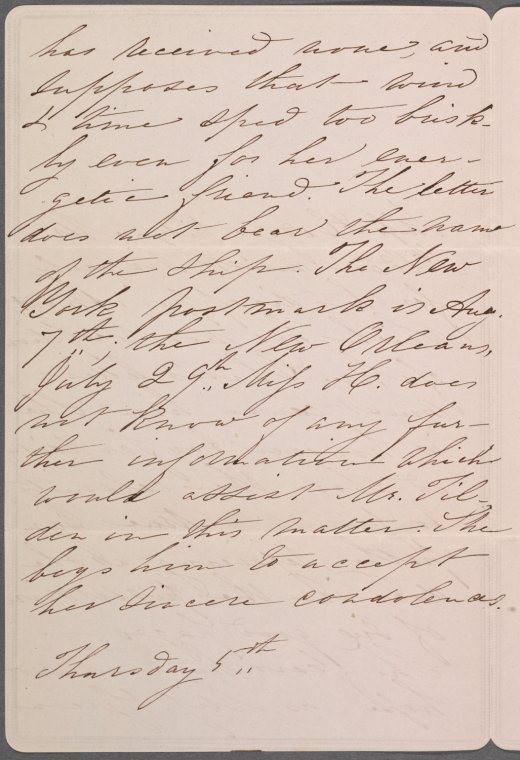 has received none, and
supposes that wind
& time sped too brisk-
ly even for her ener-
getic friend. The letter
does not bear the name
of the ship. The New
York postmark is Aug.
7th; the New Orleans,
July 29th. Miss H. does
not know of any fur-
ther information which
would assist Mr. Til-
den in this matter. She
begs him to accept
her sincere condolences.
Thursday 5th